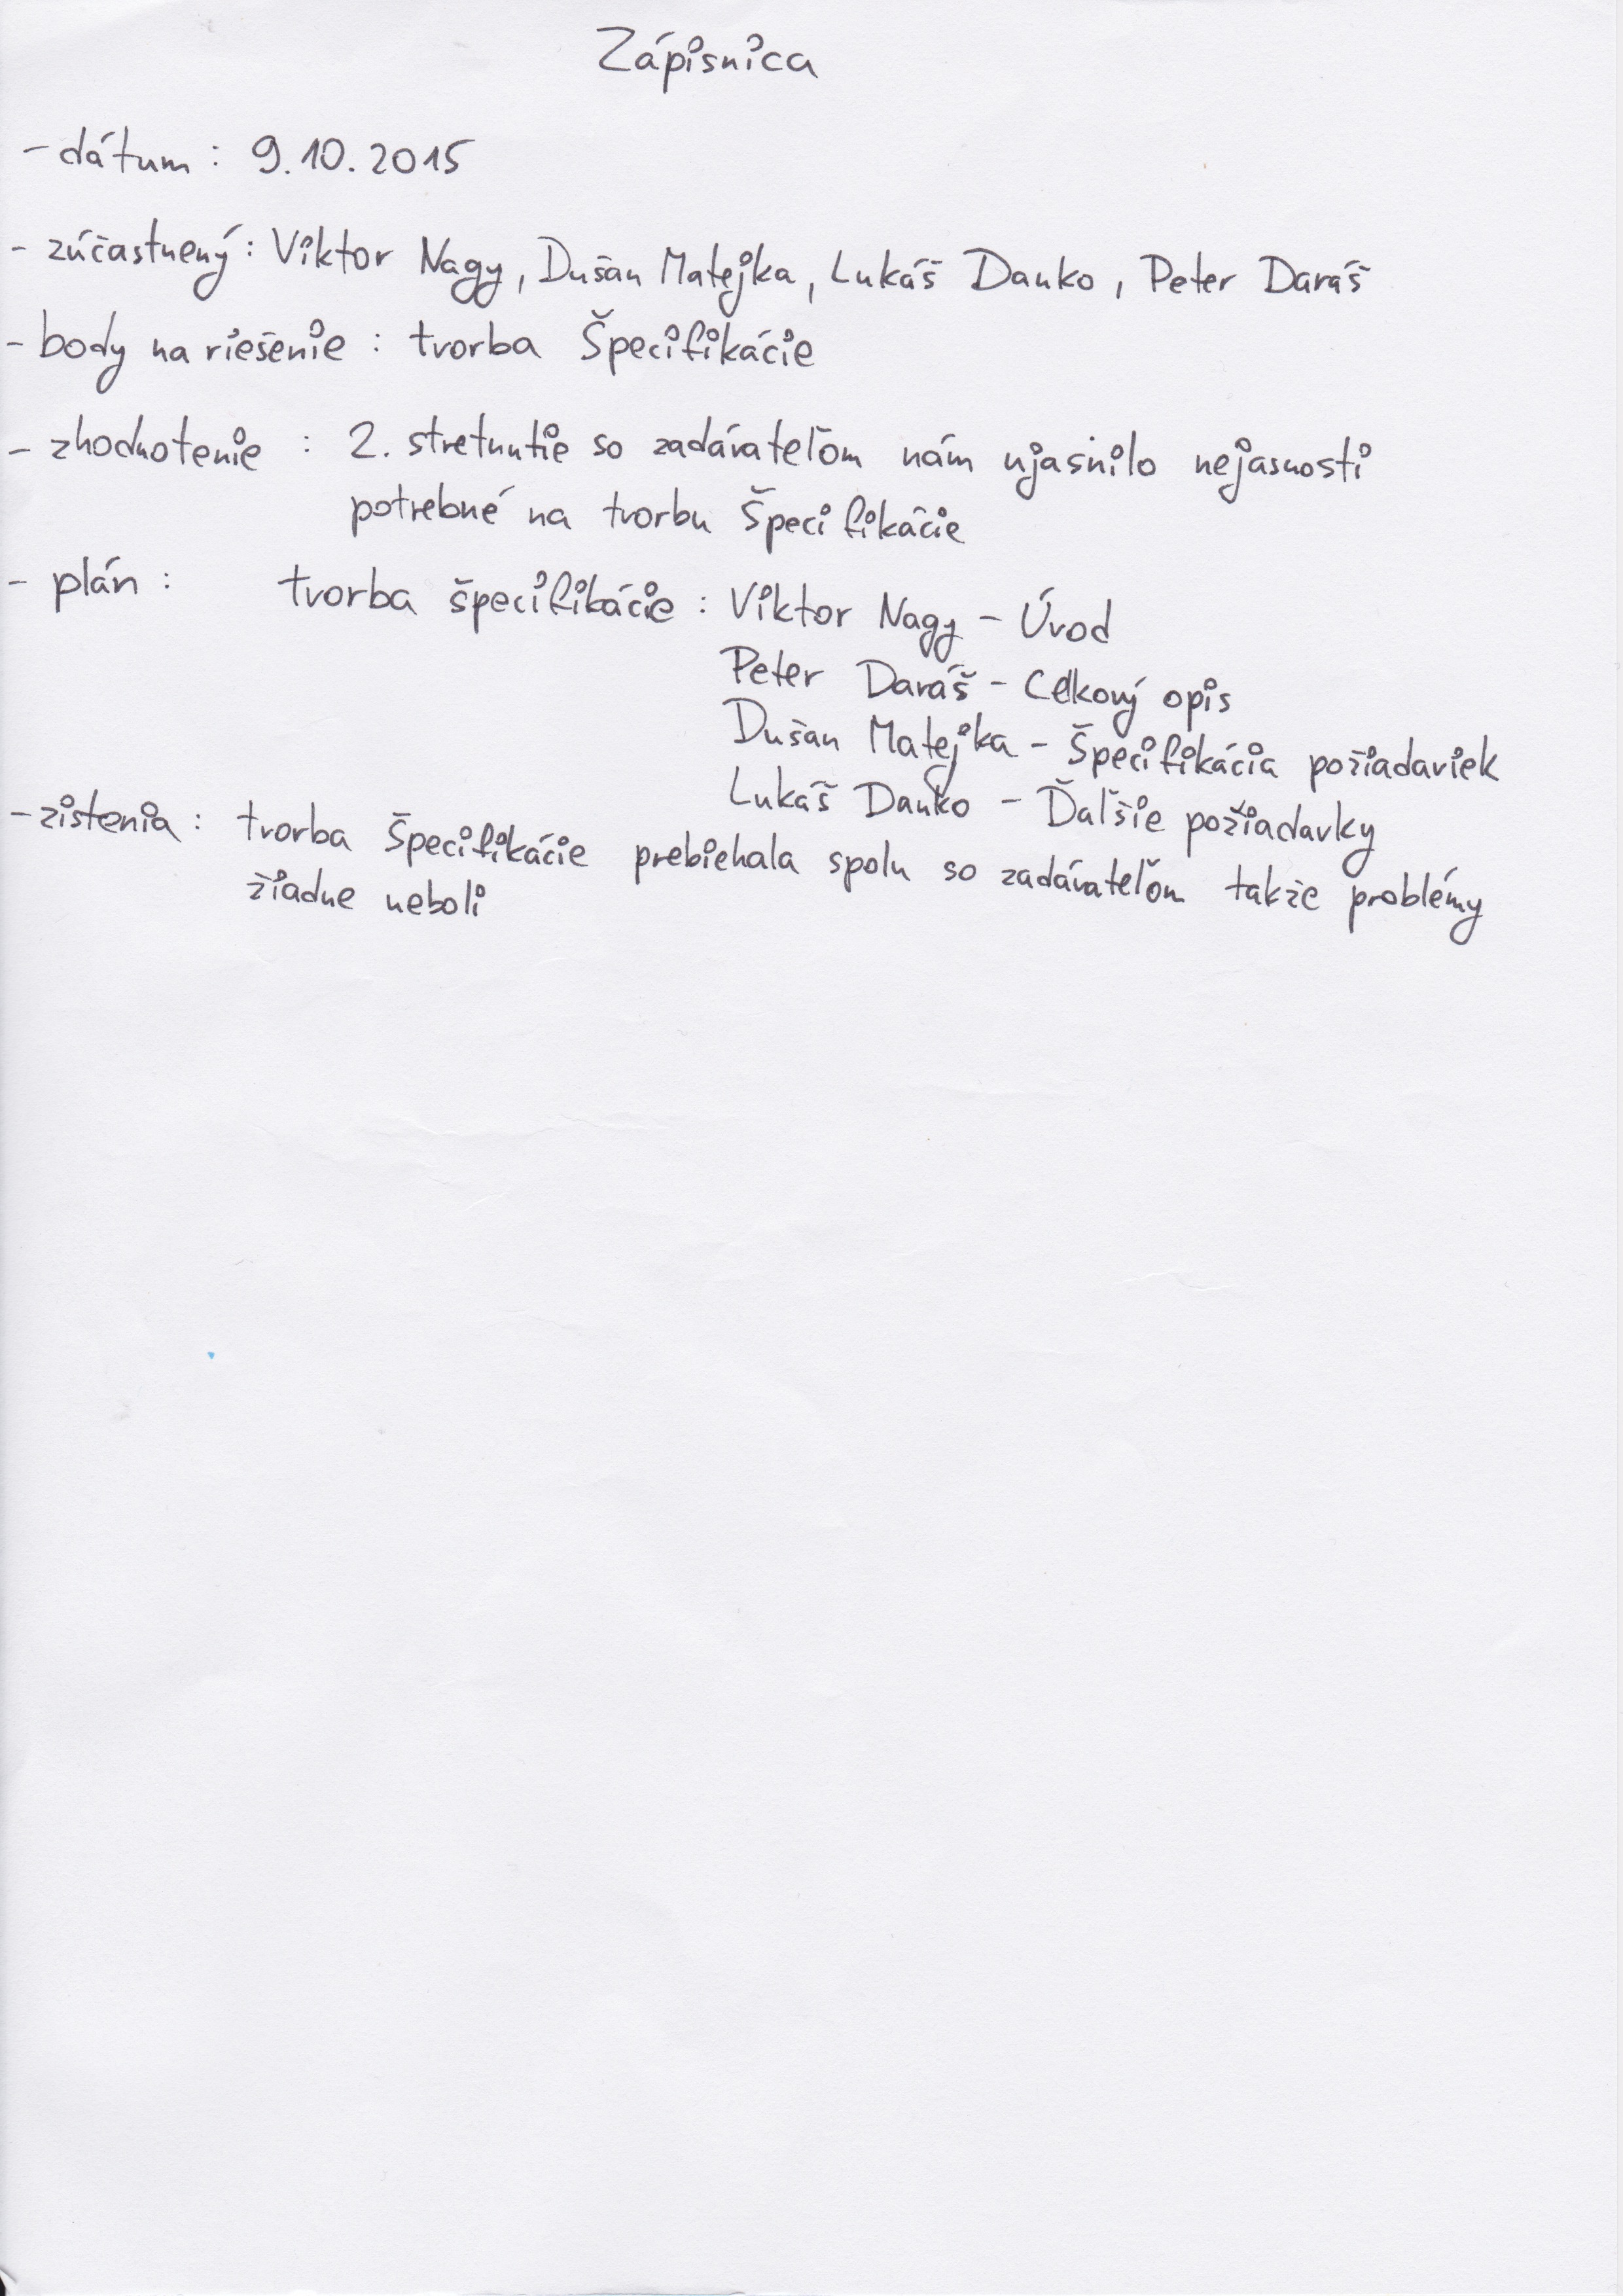 Zápisnica
- dátum : 9.10.2015
- zúčastnený : Viktor Nagy, Dušan Matejka, Lukáš Danko, Peter Daráš
- body na riešenie : tvorba Špecifikácie
- zhodnotenie : 2. stretnutie so zadávateľom nám ujasnilo nejasnosti
potrebné na tvorbu Špecifikácie
- plán : tvorba špecifikácie : Viktor Nagy - Úvod
Peter Daráš - Celkový opis
Dušan Matejka - Špecifikácia požiadaviek
Lukáš Danko - Ďaľšie požiadavky
- zistenia : tvorba Špecifikácie prebiehala spolu so zadávateľom takže problémy
žiadne neboli